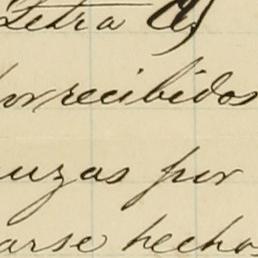 Letra A)
por recibidos
nuzas por
arse hechos